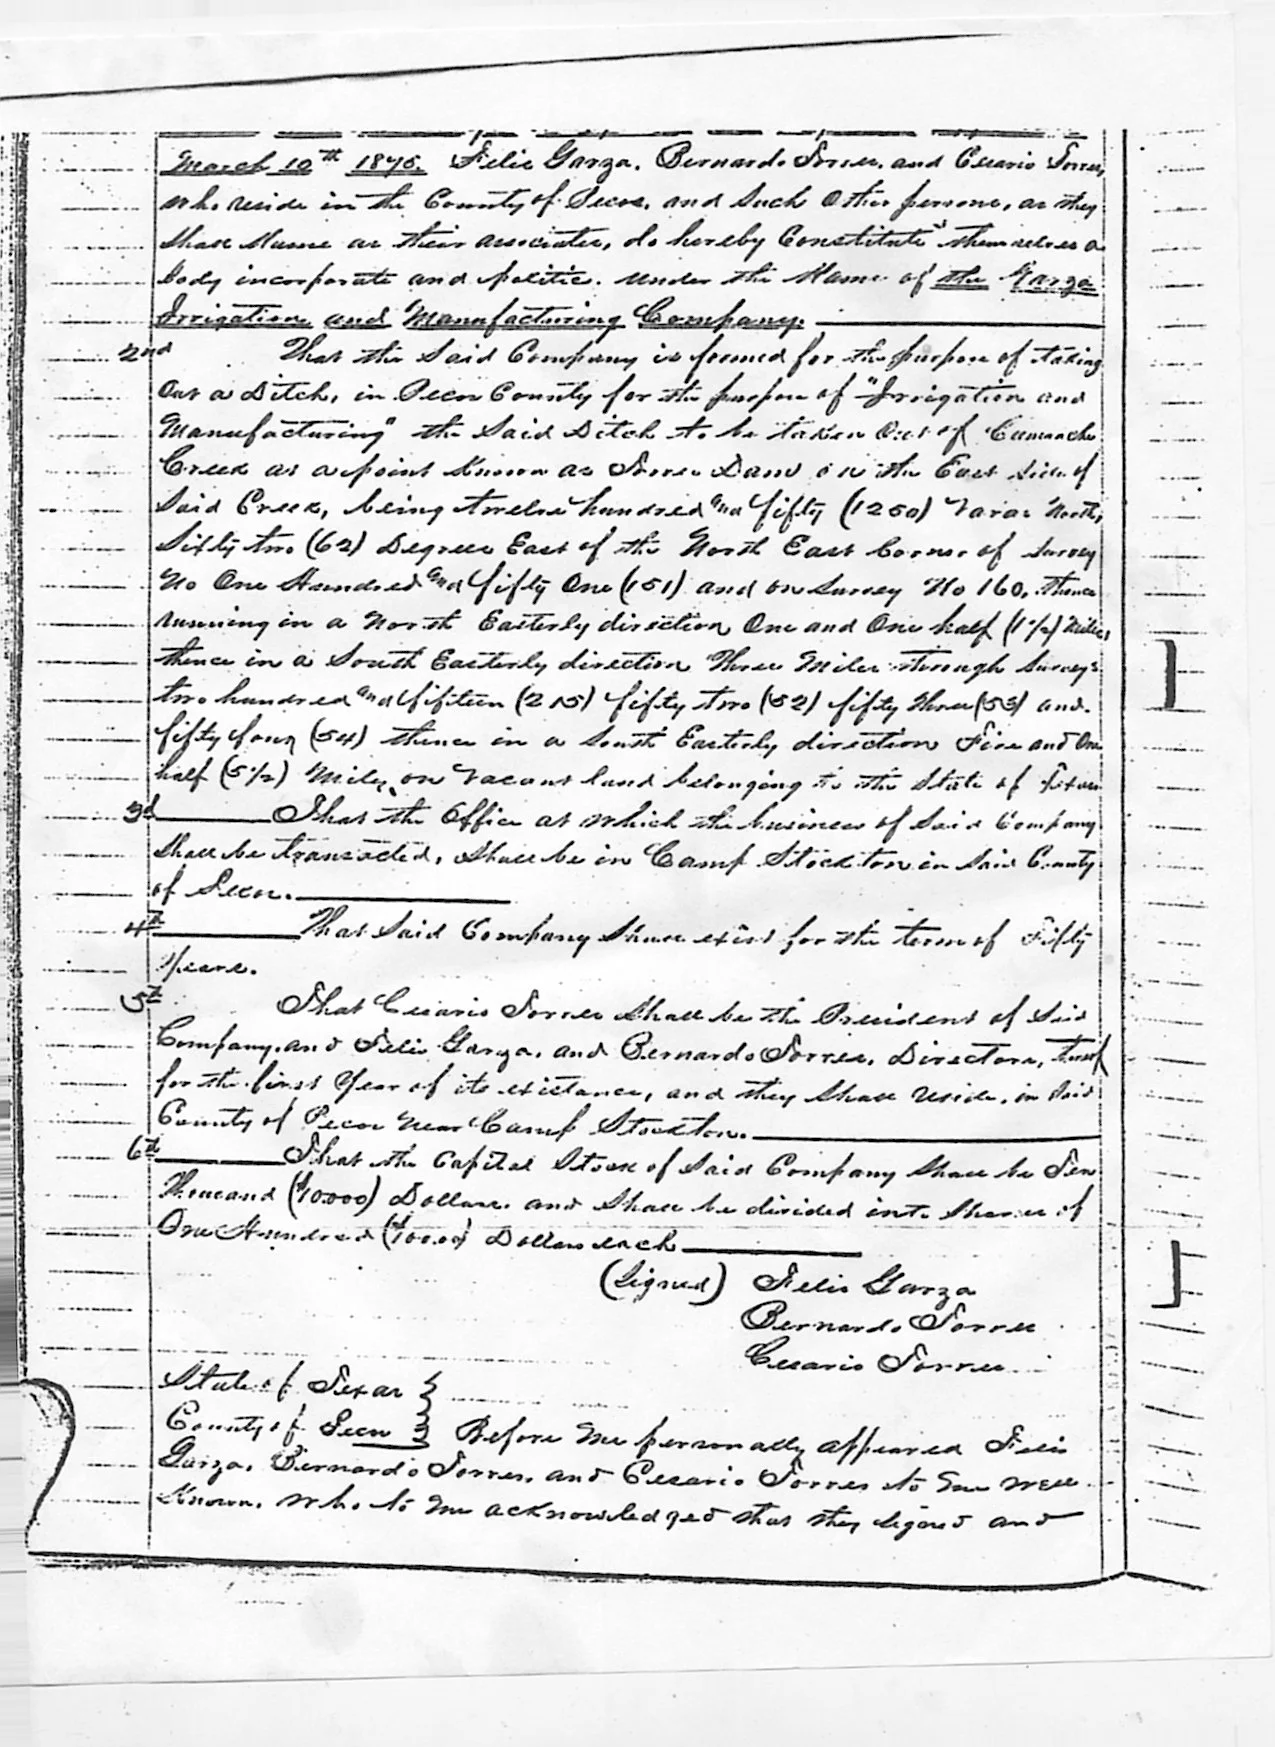 March 10th 1875. Felis Garza, Bernardo Torres, and Cesario Torres,
who reside in the County of Pecos, and Such Other persons, as they
shall Name as their associates, do hereby Constitute themselves a
body incorporate and politic. under the Name of the Garza
Irrigation and Manufacturing Company.
2nd That the Said Company is formed for the purpose of taking
Out a Ditch, in Pecos County for the purpose of "Irrigation and
Manufacturing" the Said Ditch to be taken Out of Comanche
Creek at a point Known as Torres Dam on the East side of
Said Creek, being twelve hundred and fifty (1250) Varas North,
Sixty two (62) Degrees East of the North East Corner of Survey
No One Hundred and fifty One (151) and on Survey No 160, thence
running in a North Easterly direction One and One half (1½) Miles,
thence in a South Easterly direction Three Miles through Surveys
two hundred and fifteen (215) fifty two (52) fifty three (53) and
fifty four (54) thence in a South Easterly direction Five and One
half (5½) Miles, on Vacant land belonging to the State of Texas
3d That the Office at which the business of Said Company
Shall be transacted, Shall be in Camp Stockton in Said County
of Pecos.
4th That Said Company Shall exist for the term of Fifty
Years.
5th That Cesario Torres Shall be the President of Said
Company, and Felis Garza, and Bernardo Torres, Directors, thereof
for the first Year of its existance, and they Shall reside, in Said
County of Pecos Near Camp Stockton.
6th That the Capital Stock of Said Company Shall be Ten
Thousand ($10.000) Dollars. and Shall be divided into Shares of
One Hundred ($100.00) Dollars each
(Signed) Felis Garza
Bernardo Torres
Cesario Torres
State of Texas }
County of Pecos } Before Me personally appeared Felis
Garza, Bernardo Torres, and Cesario Torres to me well
Known, who to me acknowledged that they Signed and